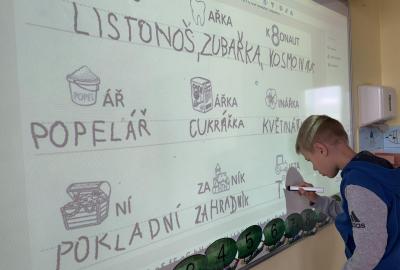 AŘKA
K8ONAUT
LISTONOŠ, ZUBAŘKA, KOSMONAUT
POPEL
ÁŘ
ÁŘKA
INÁŘKA
POPELÁŘ
CUKRÁŘKA
KVĚTINÁ
NÍ
ZA
NÍK
POKLADNÍ
ZAHRADNÍK
T
4
5
6
adidas